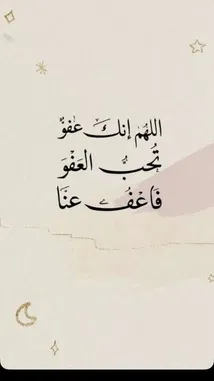 اللهم إنك عفوٌ
تُحب العفوَ
فَاعْفُ عنَا